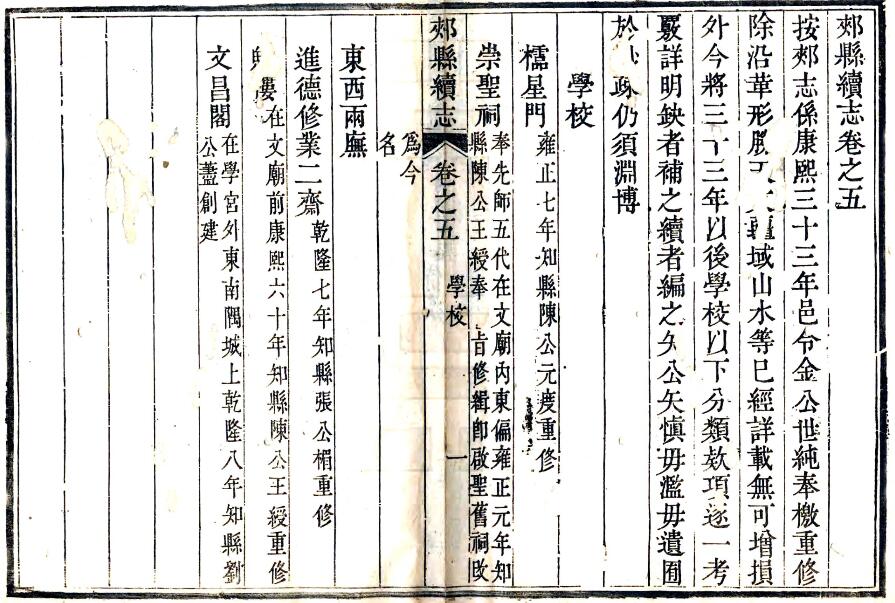 郟縣續志卷之五
按郟志係康熙三十三年邑令金公世純奉檄重修
除沿革形 域山水等已經詳載無可增損
外今將三十三年以後學校以下分類欵項逐一考
覈詳明缺者補之續者編之矢公矢慎毋濫毋遺囿
於 仍須淵博
學校
櫺星門 雍正七年知縣陳公元度重修
崇聖祠 奉先師五代在文廟內東偏雍正元年知
縣陳公王綬奉 旨修緝卽啟聖舊祠改
郟縣續志 卷之五 學校 一
爲今
名
東西兩廡
進德修業二齋 乾隆七年知縣張公楣重修
在文廟前康熙六十年知縣陳公王綬重修
文昌閣 在學宮外東南隅城上乾隆八年知縣劉
公藎創建